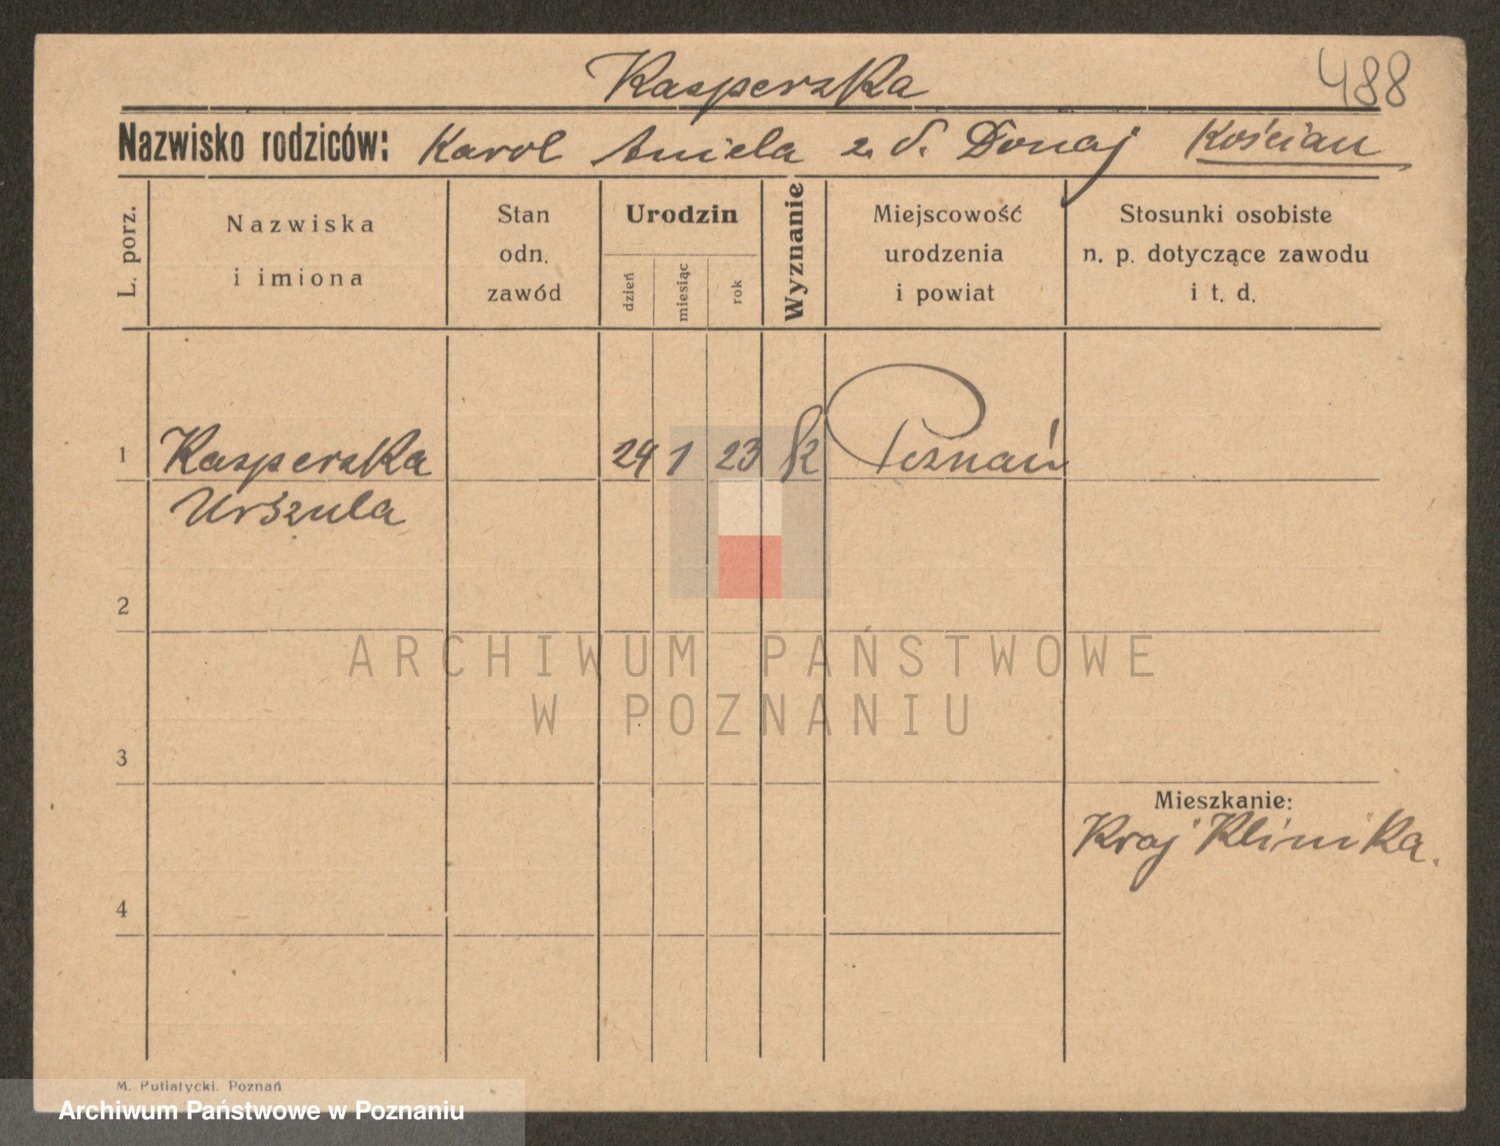 Kasperska 488
Nazwisko rodziców: Karol Aniela z. d. Donaj Kościan
L. porz.
Nazwiska
i imiona
Stan
odn.
zawód
Urodzin
dzień
miesiąc
rok
Wyznanie
Miejscowość
urodzenia
i powiat
Stosunki osobiste
n. p. dotyczące zawodu
i t. d.
1 Kasperska 24 1 23 k Poznań
Urszula
2
ARCHIWUM PAŃSTWOWE
W POZNANIU
3
Mieszkanie:
Kraj Klinika.
4
M. Putiatycki, Poznań
Archiwum Państwowe w Poznaniu